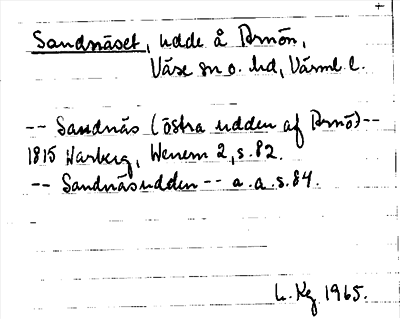 +
Sandnäset, udde å Arnön,
Väse sn o. hd, Värml. l.
-- Sandnäs (östra udden af Arnö) --
1815 Warberg, Wenern 2, s. 82.
-- Sandnäsudden -- a.a.s. 84.
L. Kg 1965.